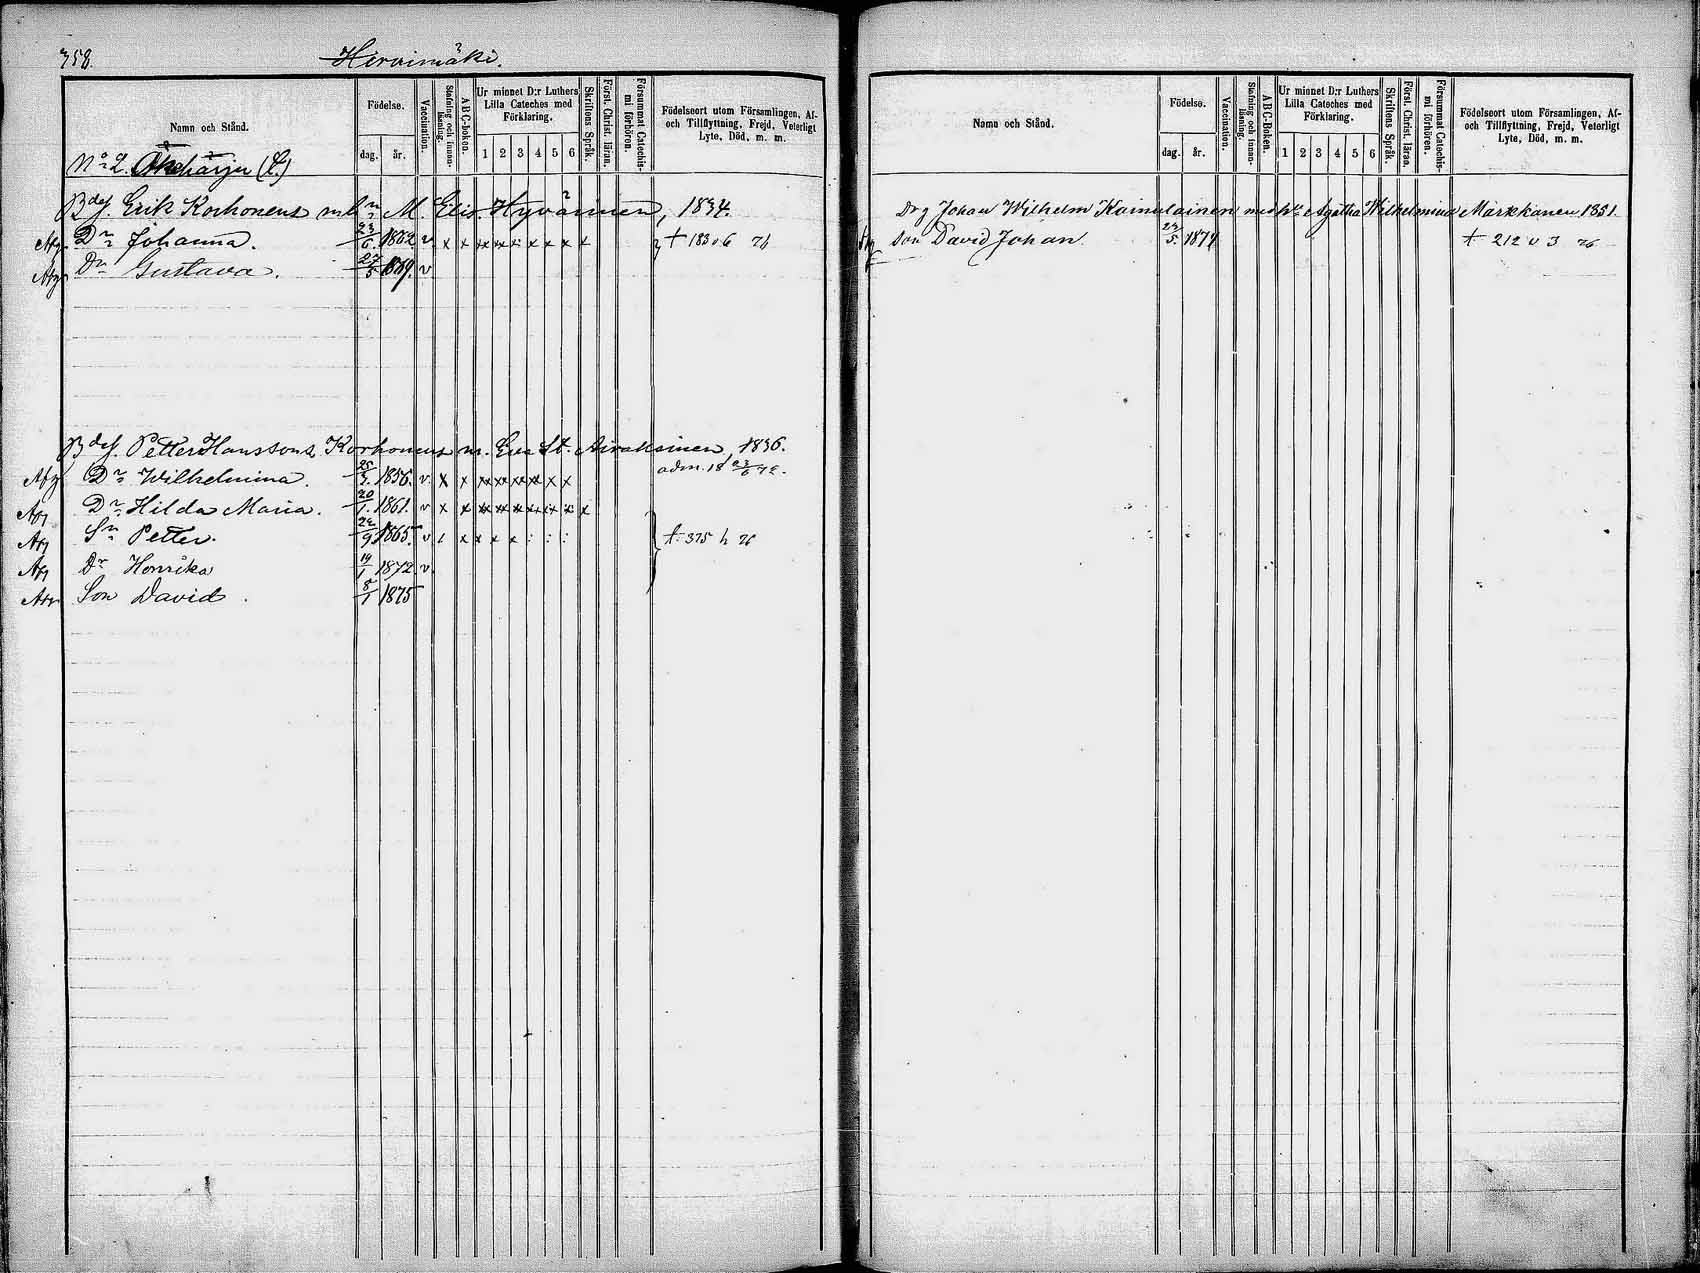 358.
Hirvimäki.
Namn och Stånd.
Födelse.
dag.
år.
Vaccination.
Stafning och innanläsning.
A B C-boken.
Ur minnet D:r Luthers Lilla Cateches med Förklaring.
1 2 3 4 5 6
Skriftens Språk.
Först. Christ. läran.
Försummat Catechismi förhören.
Födelseort utom Församlingen, Af- och Tillflyttning, Frejd, Veterligt Lyte, Död, m. m.
No 2. (L.)
Bdes. Erik Korhonens m. M. Elis. Hyvärinen, 1834.
Afg Dr Johanna. 23/6. 1862. v x x xx xx x x x x x † 183 v 6 76
Afg Dr Gustava. 27/5 1869. v
Bdes. Petter Hanssons Korhonens m. Eva St. Airaksinen, 1836.
Afg Dr Wilhelmina. 25/3. 1856. v. x x xx xx xx xx x x adm. 18 23/6 72.
Afg Dr Hilda Maria. 20/1. 1861. v x x xx xx xx xx xx x x
Afg Sn Petter. 1865. v x x x x : : : † 375 h 76
Afg Dr Henrika 19/1 1872. v.
Afg Son David. 8/1 1875
Namn och Stånd.
Födelse.
dag.
år.
Vaccination.
Stafning och innanläsning.
A B C-boken.
Ur minnet D:r Luthers Lilla Cateches med Förklaring.
1 2 3 4 5 6
Skriftens Språk.
Först. Christ. läran.
Försummat Catechismi förhören.
Födelseort utom Församlingen, Af- och Tillflyttning, Frejd, Veterligt Lyte, Död, m. m.
Drg Johan Wilhelm Kainulainen med hu Agatha Wilhelmina Markkanen 1851.
Afg Son David Johan 1874 † 212 v 3 76